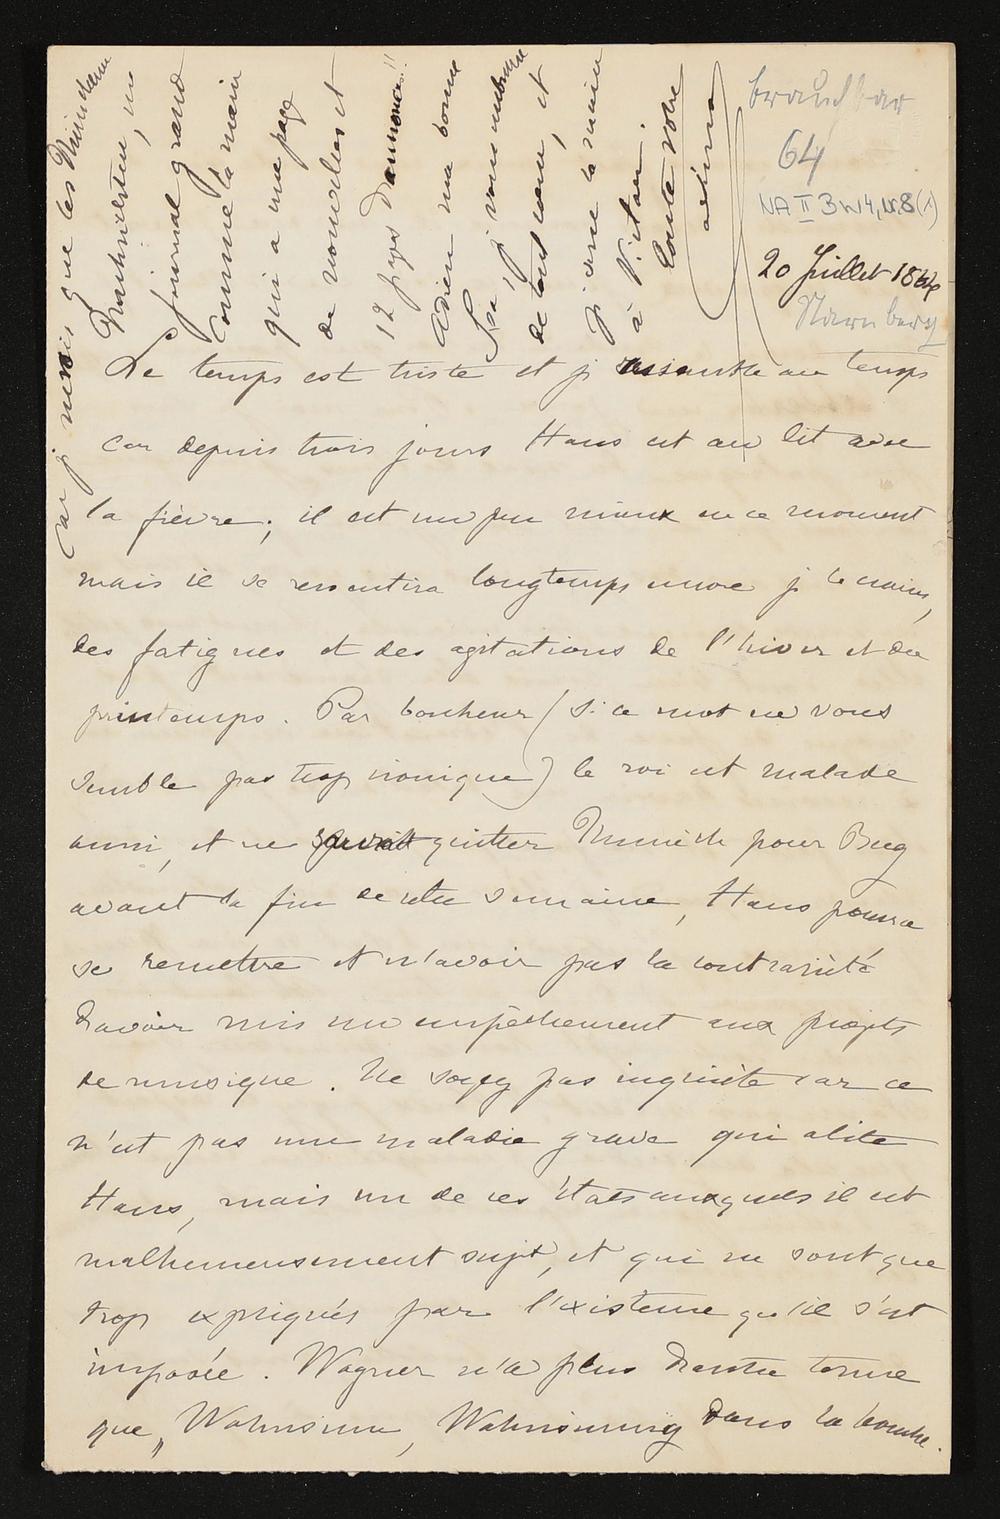 brauchbar
64
NA II 3 W4, Nr. 8 (1)
20 Juillet 1864
Starnberg
Le temps est triste et je ressemble au temps
car depuis trois jours Hans est au lit avec
la fièvre; il est un peu mieux en ce moment
mais il se ressentira longtemps encore je le crains,
des fatigues et des agitations de l'hiver et du
printemps. Par bonheur (si ce mot ne vous
semble pas trop ironique) le roi est malade
aussi, et ne saurait quitter Munich pour Berg
avant la fin de cette semaine, Hans pourra
se remettre et n'avoir pas la contrariété
d'avoir mis un empêchement aux projets
de musique. Ne soyez pas inquiète car ce
n'est pas une maladie grave qui alite
Hans, mais un de ces états auxquels il est
malheureusement sujet, et qui ne sont que
trop expliqués par l'existence qu'il s'est
imposée. Wagner n'a plus d'autre terme
que „Wahnsinn, Wahnsinnig dans la bouche.
Car je
que les
Nachrichten, un
journal grand
comme la main
qui a une page
de nouvelles et
12 pages d'annonces!!
Adieu ma bonne
je vous embrasse
de tout cœur, et
je serre la main
à
Toute votre